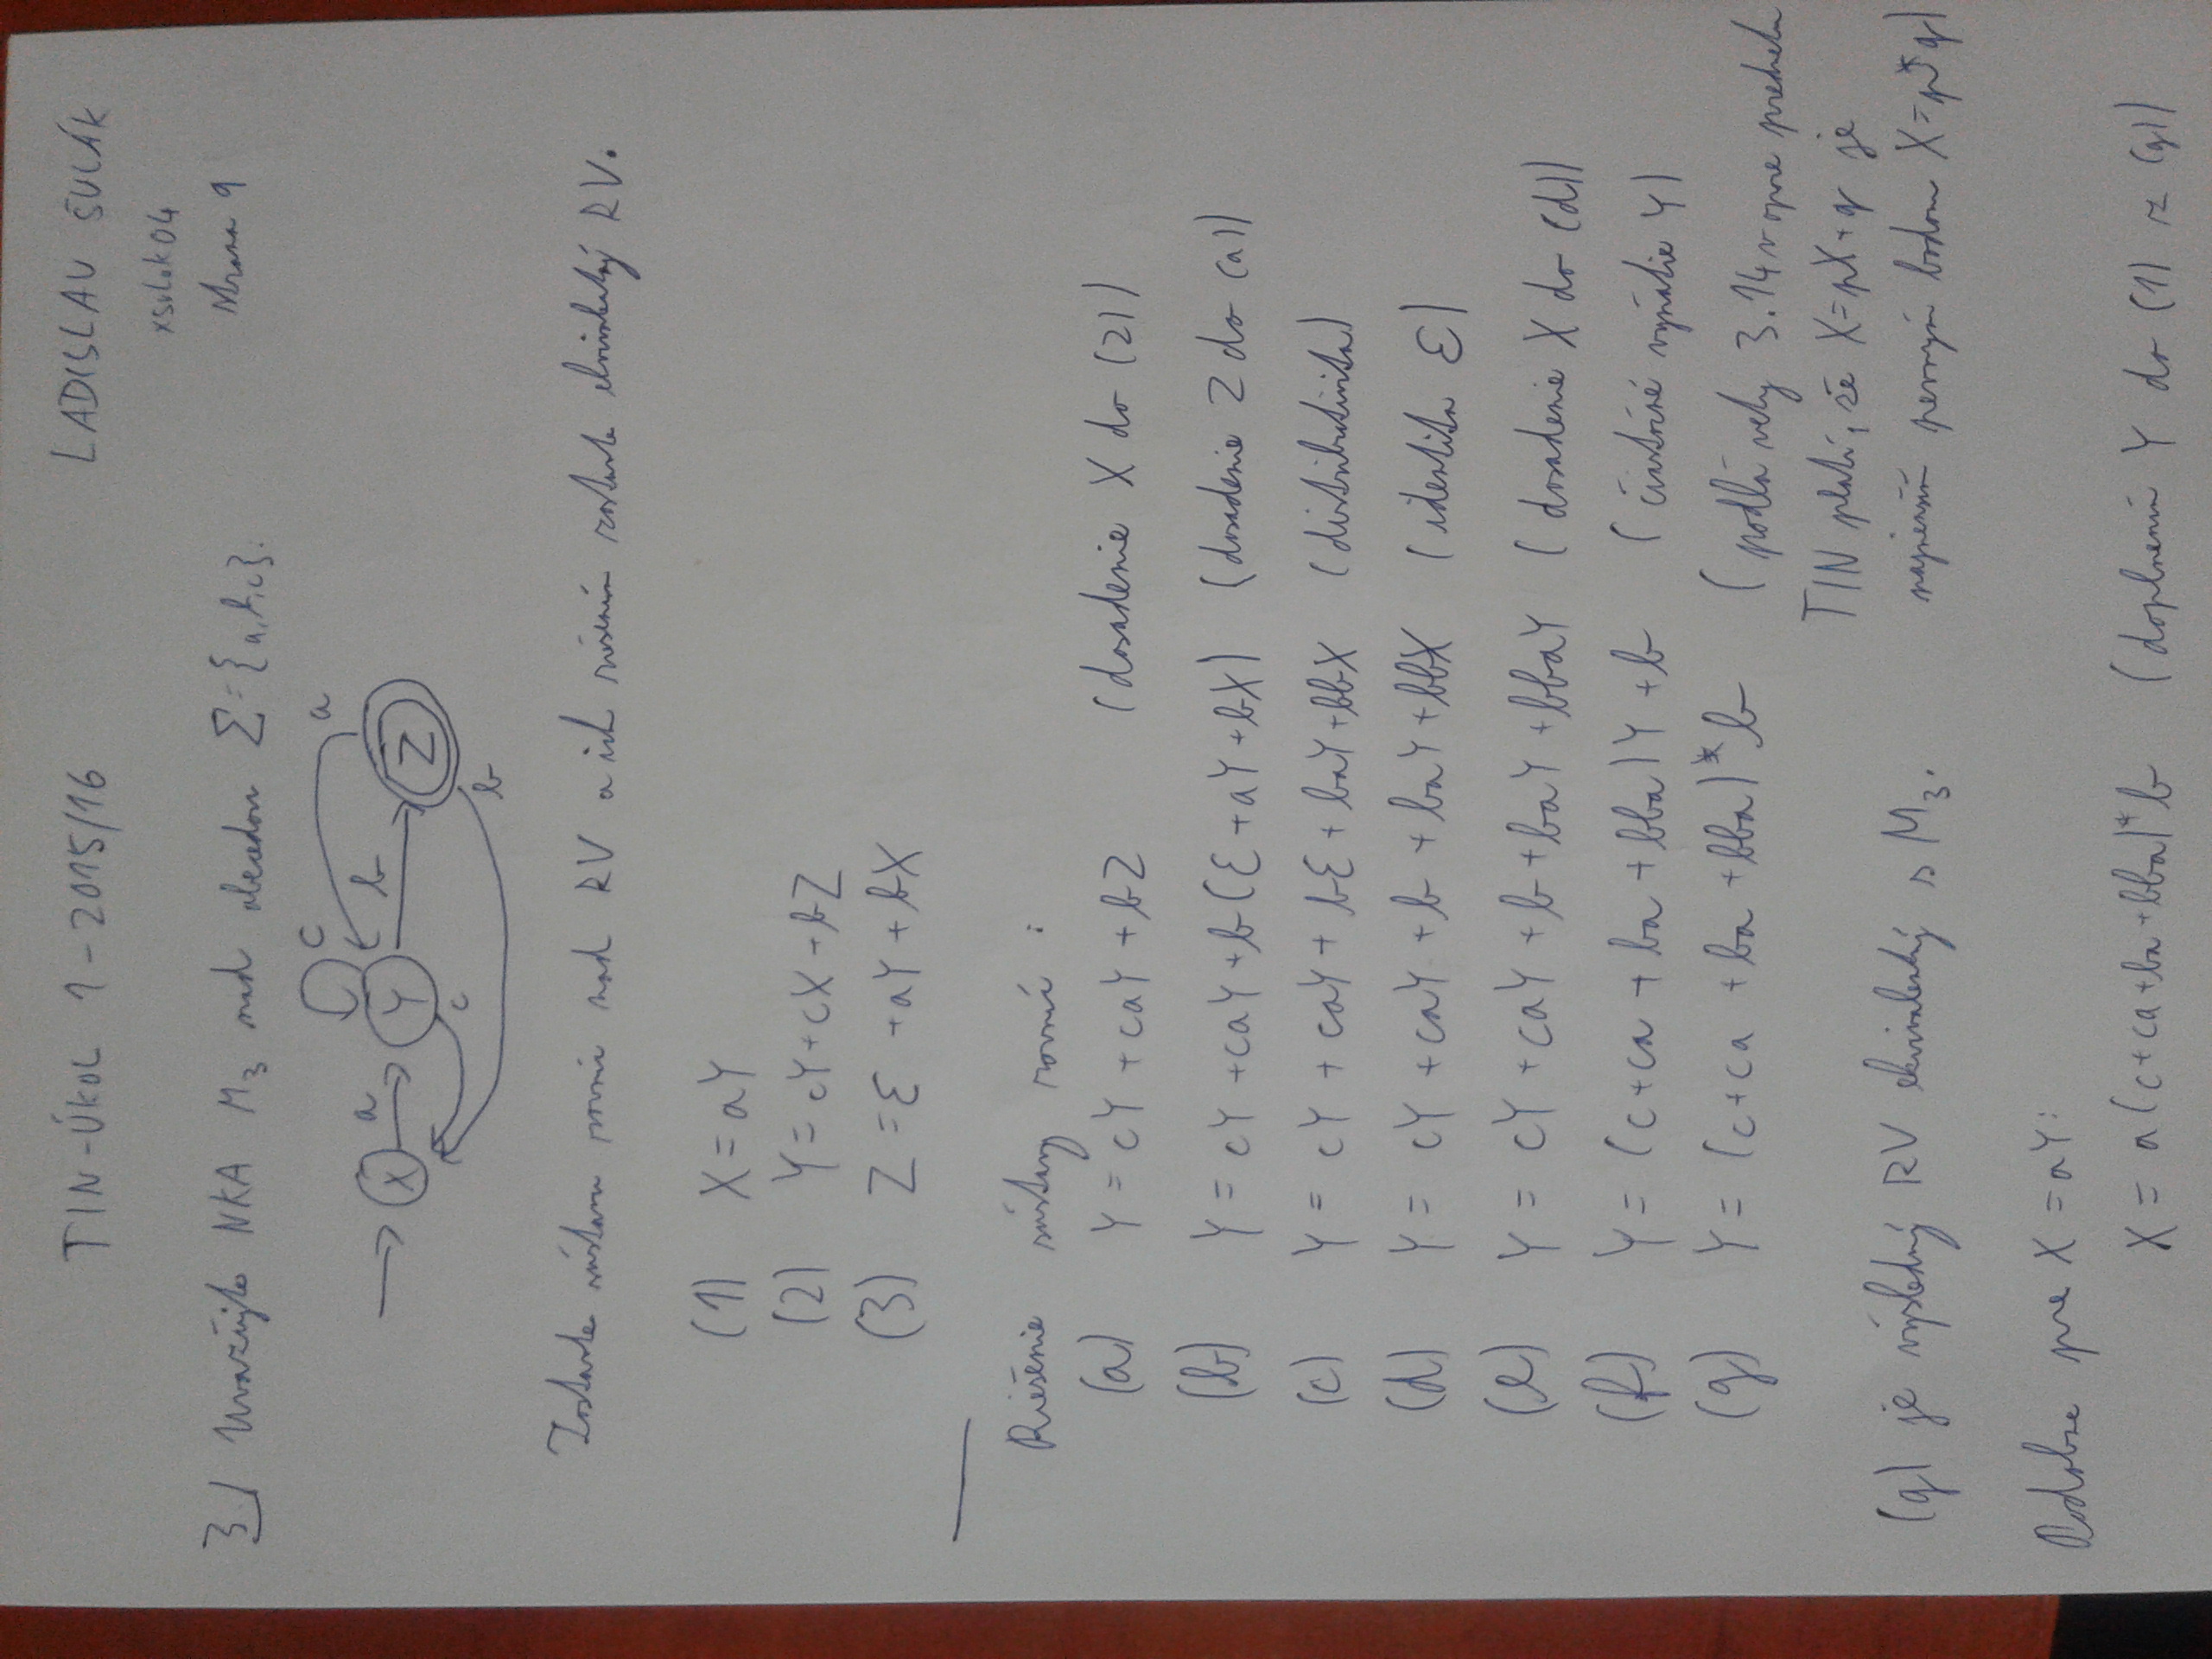 TIN-ÚKOL 1 - 2015/16 LADISLAV ŠULÁK
xsulak04
strana 9
3.) Uvažujte NKA M3 nad abecedou Σ={a,b,c}.
c
a
a
b
X
Y
Z
c
b
Zostavte sústavu rovníc nad RV a ich riešením zostavte ekvivalentný RV.
(1) X=aY
(2) Y=cY+cX+bZ
(3) Z=ε+aY+bX
Riešenie sústavy rovníc:
(a) Y=cY+caY+bZ (dosadenie X do (2))
(b) Y=cY+caY+b(ε+aY+bX) (dosadenie Z do (a))
(c) Y=cY+caY+bε+baY+bbX (distributivita)
(d) Y=cY+caY+b+baY+bbX (identita ε)
(e) Y=cY+caY+b+baY+bbaY (dosadenie X do (d))
(f) Y=(c+ca+ba+bba)Y+b (čiastočné vyňatie Y)
(g) Y=(c+ca+ba+bba)*b (podľa vety 3.14 v opore predmetu
TIN platí, že X=pX+q je
(g) je výsledný RV ekvivalentný s M3. najmenším pevným bodom X=p*q)
Podobne pre X=aY:
X=a(c+ca+ba+bba)*b (doplnením Y do (1) z (g))